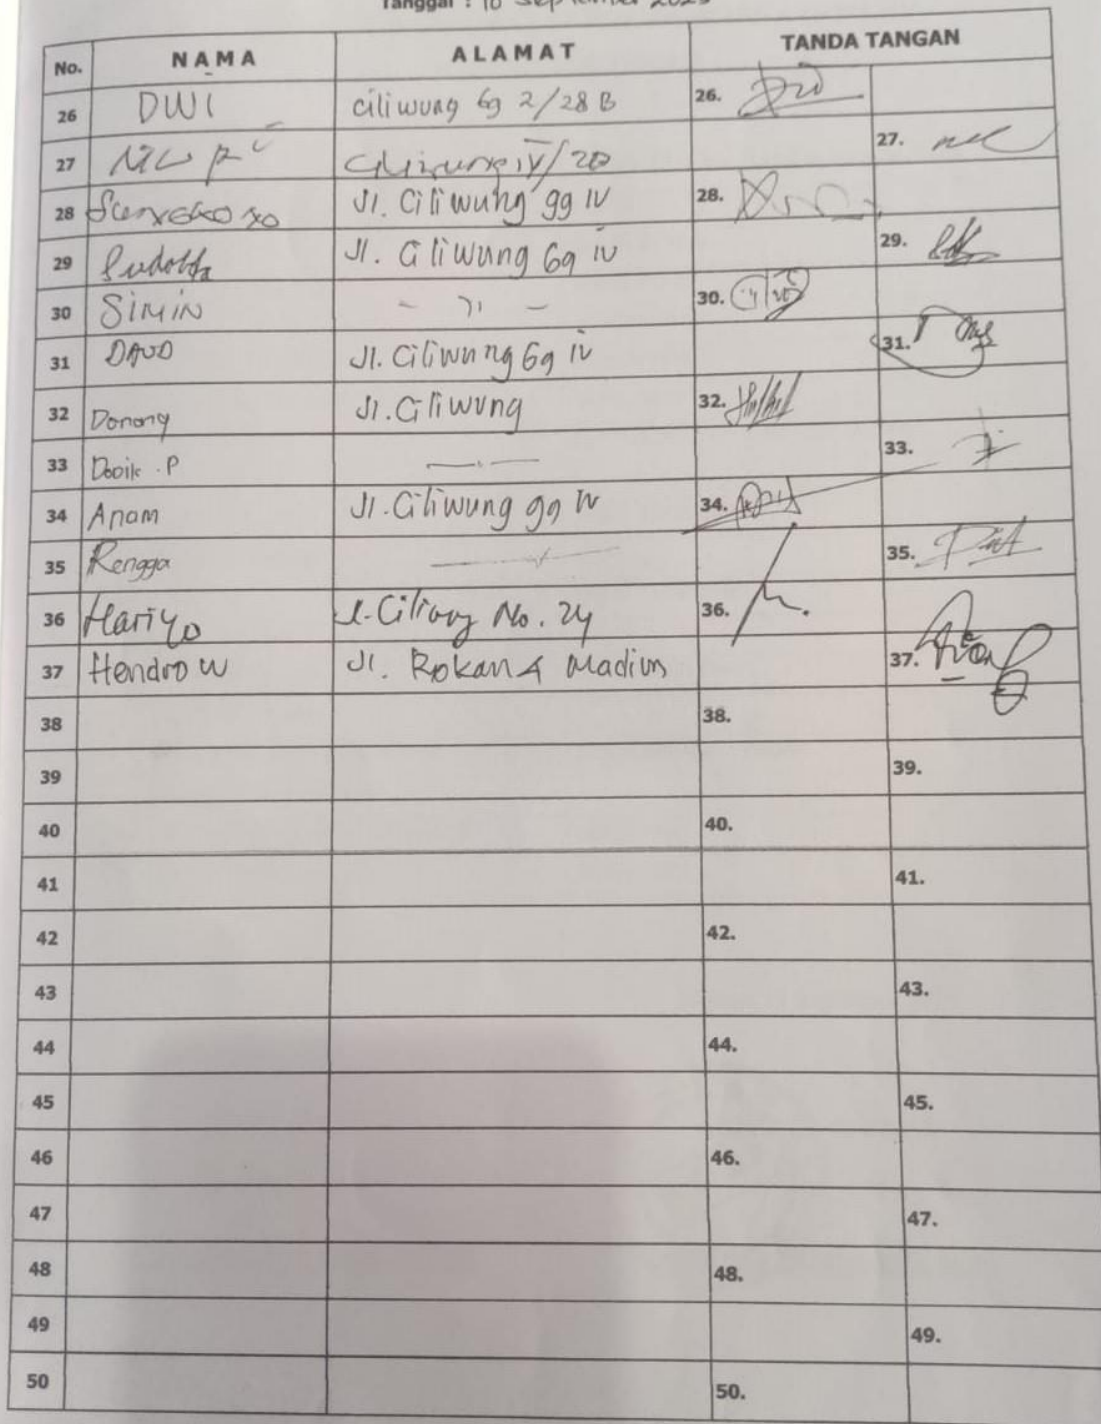 Tanggal : 10 September 2023
No. NAMA ALAMAT TANDA TANGAN
26 DWI Ciliwung Gg 2/28 B 26.
27 IV/20 27.
28 Jl. Ciliwung gg IV 28.
29 Jl. Ciliwung Gg IV 29.
30 SIMIN - 11 - 30.
31 DAUD Jl. Ciliwung Gg IV 31.
32 Donang Jl. Ciliwung 32.
33 Dooik . P 33.
34 Anam Jl. Ciliwung gg IV 34.
35 Rengga 35.
36 Hariyo No. 24 36.
37 Hendro W Jl. Rokan 4 Madiun 37.
38 38.
39 39.
40 40.
41 41.
42 42.
43 43.
44 44.
45 45.
46 46.
47 47.
48 48.
49 49.
50 50.